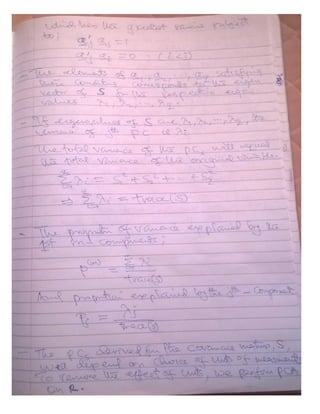 which has the greatest variance subject
to;
a_j' a_j = 1
a_j' a_i = 0 : (i<j)
- The elements of a_1, a_2, ..., a_q satisfying
these corresponds to the eigen
vector of S the respective eigen
values λ_1, λ_2, ..., λ_q.
- If eigenvalues of S are λ_1, λ_2, ..., λ_q, the
variance of jth PC is λ_j.
The total variance of the PCs will equal
the total variance of the original variables.
Σ λ_i = S_1^2 + S_2^2 + ... + S_q^2
⇒ Σ λ_i = trace(S)
- The proportion of variance explained by the
1st m-components;
P^(m) = Σ λ_i / trace(S)
And proportion explained by the jth - Component
P_j = λ_j / trace(S)
- The PCs derived from the Covariance matrix, S,
will depend on choice of units of measurement
to remove the effect of units, we perform PCA
on R.